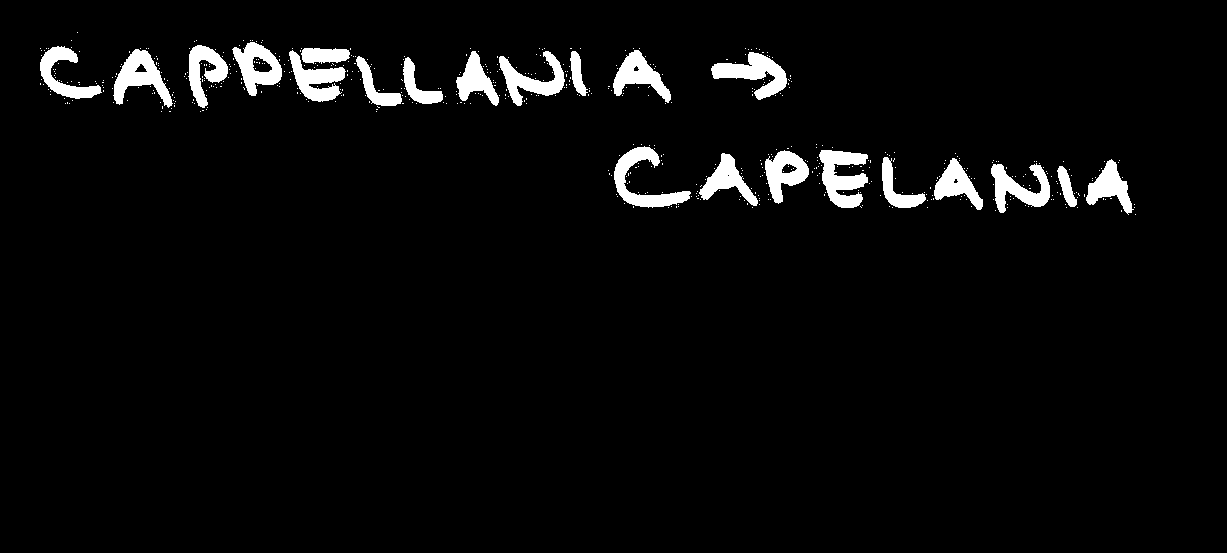 CAPPELLANIA →
CAPELANIA